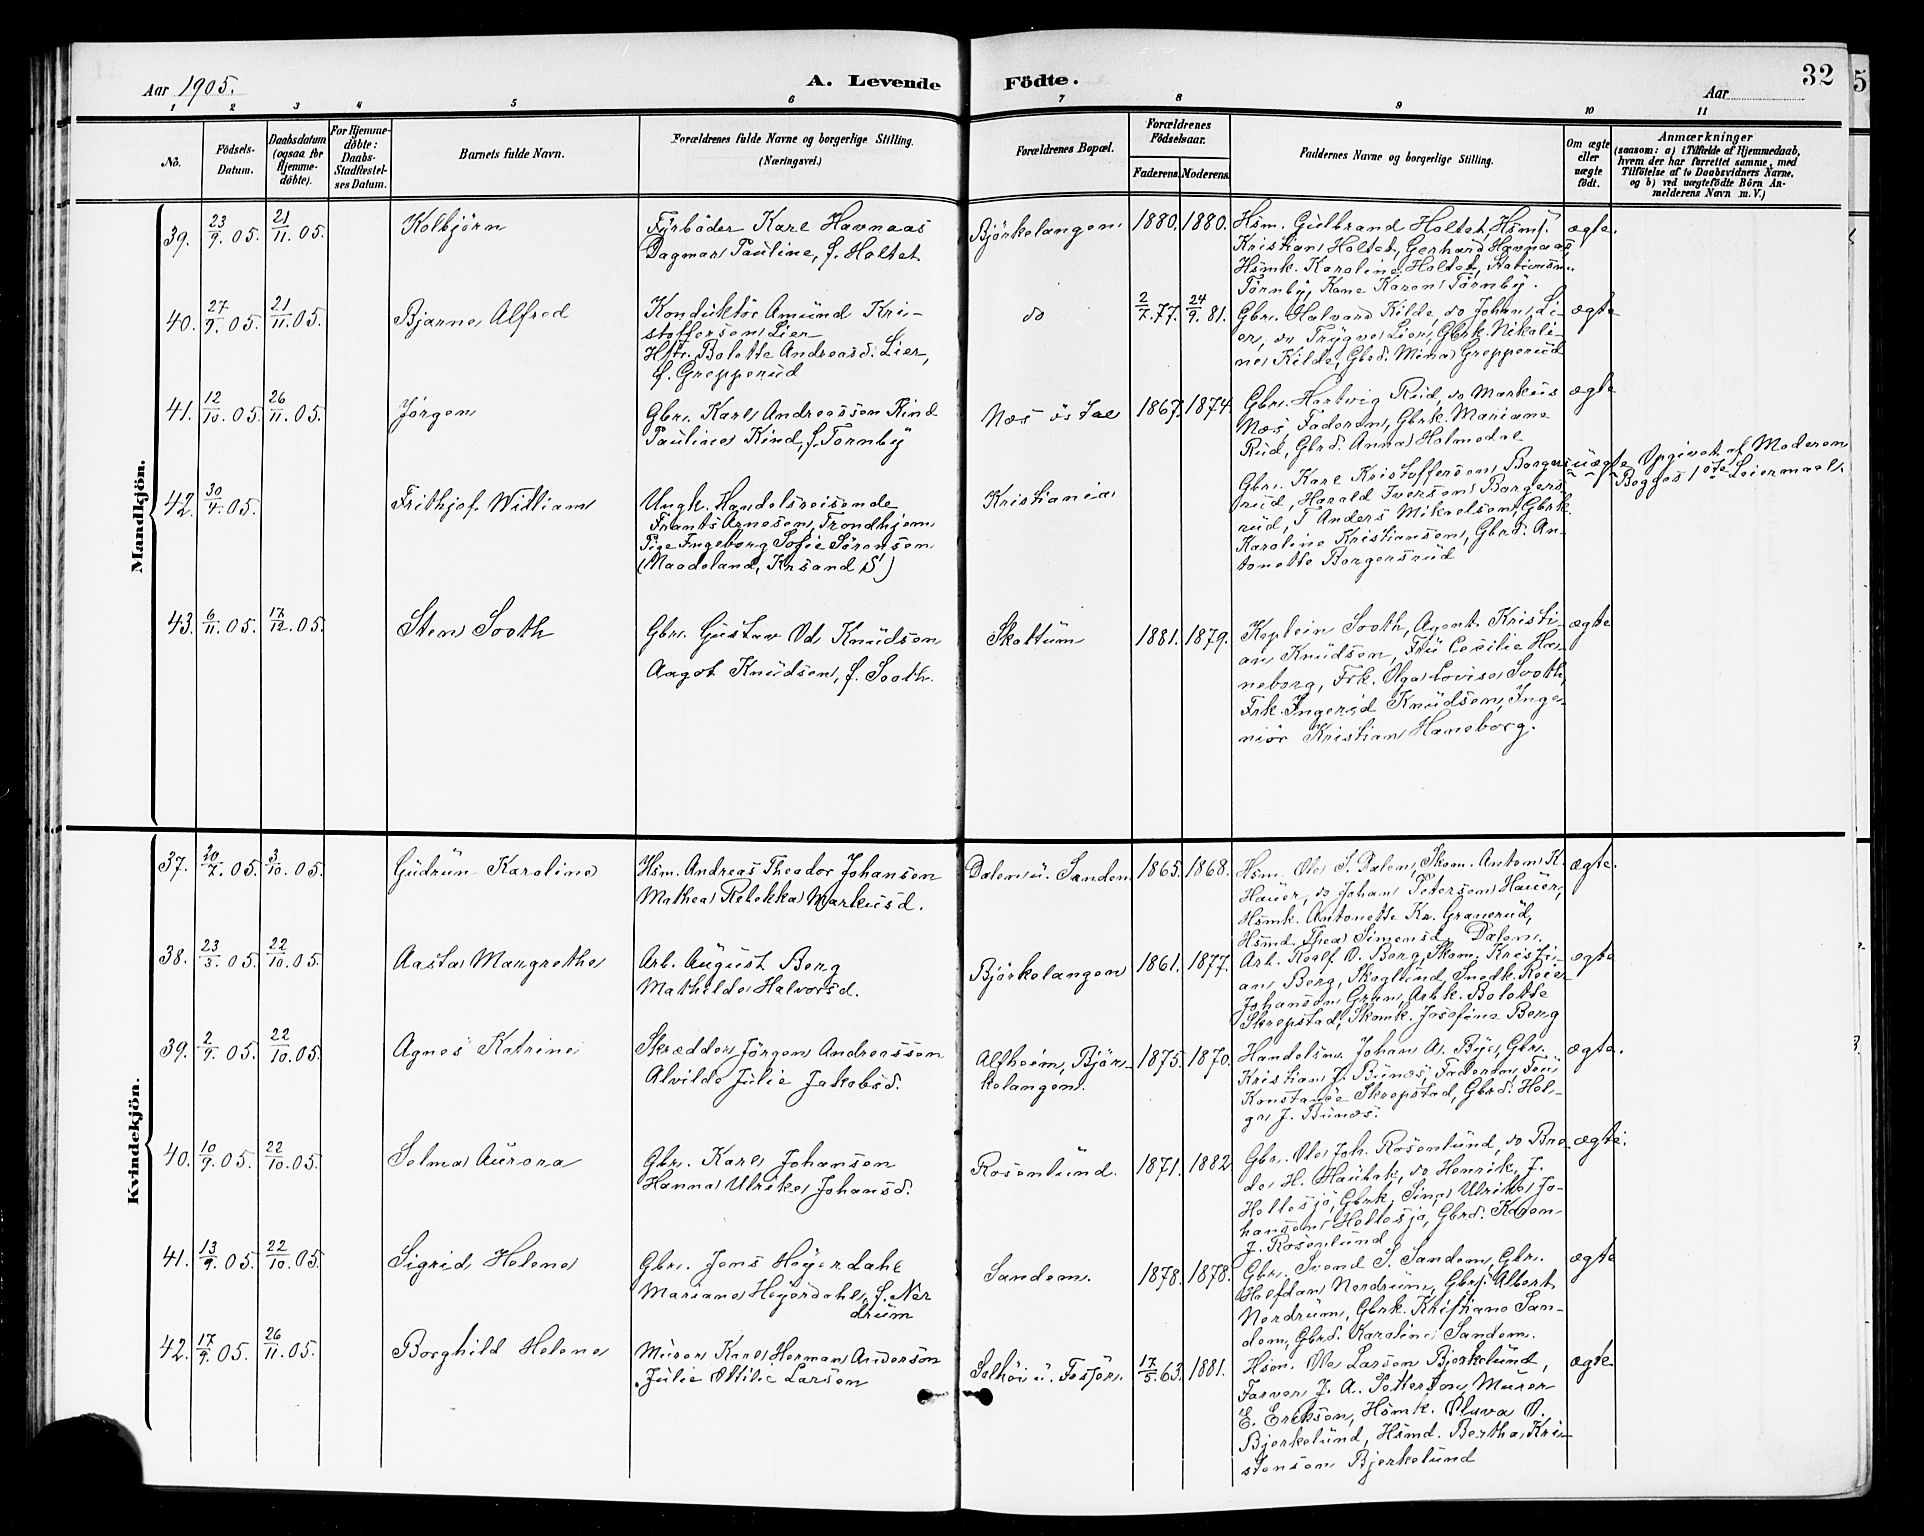 Aar 1905.
A. Levende
Födte.
Aar
32
1 2 3 4 5 6 7 8 9 10 11
No.
Födsels-
Datum.
Daabsdatum
(ogsaa for
Hjemme-
döbte).
For Hjemme-
döbte:
Daabs-
Stadfæstel-
ses Datum.
Barnets fulde Navn.
Forældrenes fulde Navne og borgerlige Stilling.
(Næringsvei.)
Forældrenes Bopæl.
Forældrenes
Födselsaar.
Faderens.
Moderens.
Faddernes Navne og borgerlige Stilling.
Om ægte
eller
uægte
födt.
Anmærkninger
(saasom: a) i Tilfælde af Hjemmedaab,
hvem der har forrettet samme, med
Tilföielse af to Daabsvidners Navne.
og b) ved uægtefödte Börn An-
melderens Navn m. V.)
Mandkjön.
39. 23/9. 05. 21/11. 05.
Kolbjörn
Fyrböder Karl Havnaas
Dagmar Pauline, f. Holtet
Björkelangen
1880. 1880.
Hsm. Gulbrand Holtet, Hsmf.
Kristian Holtet, Gerhard Havnaas,
Hsmk. Karoline Holtet, Stationsm.
Törnby, Kone Karen Törnby.
ægte.
40. 27/9. 05. 21/11. 05.
Bjarne Alfred
Konduktör Amund Kri-
stoffersen Lier
Hstr. Bolette Andreasd. Lier,
f. Grepperud
do
2/7. 77. 24/9. 81.
Gbr. Halvard Kilde, do Johan Li-
er, do Trygve Lier, Gbrk. Nikoli-
ne Kilde, Gbrd. Mina Grepperud
ægte
41. 12/10. 05. 26/11. 05.
Jörgen
Gbr. Karl Andreassen Kind
Pauline Kind, f. Tornby
Næs östre
1867. 1874.
Gbr. Hartvig Rud, do Markus
Næs, Faderen, Gbrk. Mariane
Rud, Gbrd. Anna Holmedal
ægte
42. 30/4. 05.
Frithjof William
Ungk. Handelsreisende
Frants Arnesen, Trondhjem
Pige Ingeborg Sofie Sörensen
(Maadeland, Krsand S)
Kristiania
Gbr. Karl Kristoffersen Borgers-
rud, Harald Iversen Borgers-
rud, T Anders Mikaelsen, Gbrk.
Karoline Kristiansen, Gbrd. An-
tonette Borgersrud
uægte
Opgivet af Moderen
Begges 1ste Leiermaal.
43. 6/11. 05. 17/12. 05.
Sten Sooth
Gbr. Gustav Od Knudsen
Aagot Knudsen, f. Sooth.
Skattum
1881. 1879.
Kaptein Sooth, Agent Kristi-
an Knudsen, Fru Cecilie Ha-
neborg, Frk. Olga Lovise Sooth,
Frk. Ingerid Knudsen, Inge-
niör Kristian Haneborg.
ægte
Kvindekjön.
37. 20/7. 05. 3/10. 05.
Gudrun Karoline
Hsm. Andreas Theodor Johansen
Mathea Rebekka Markusd.
Dalen u. Sanden
1865. 1868.
Hsm. Ole S. Dalen, Skom. Anton K.
Hauer, do Johan Petersen Hauer,
Hsmk. Antonette Kr. Granerud,
Hsmd. Thea Simensd. Dalen.
ægte.
38. 23/3. 05. 22/10. 05.
Aasta Margrethe
Arb. August Berg
Mathilde Halvorsd.
Björkelangen
1861. 1877.
Arb. Roolf O. Berg, Skom. Kristi-
an Berg, Skoglund, Snedk. Reier
Johansen Gran, Arbk. Bolette
Skrepstad, Skomk. Josefine Berg
ægte
39. 2/9. 05. 22/10. 05.
Agnes Katrine
Skrædder Jörgen Andreassen
Alvilde Julie Jakobsd.
Alfheim, Björ-
kelangen.
1875. 1870.
Handelsm. Johan A. Bye, Gbr.
Kristian J. Bunæs, Faderen, Fru
Konstanse Skrepstad, Gbrd. Hel-
ga J. Bunæs.
ægte.
40. 10/9. 05. 22/10. 05.
Selma Aurora
Gbr. Karl Johansen
Hanna Ulrike Johansd.
Rosenlund.
1871. 1882
Gbr. Ole Joh. Rosenlund, do Bre-
de H. Haubak, do Henrik J.
Hollesjö, Gbrk. Sina Ulrike Jo-
hansen Hollesjö, Gbrd. Karen
J. Rosenlund
ægte.
41. 13/9. 05. 22/10. 05.
Sigrid Helene
Gbr. Jens Heyerdahl
Mariane Heyerdahl, f. Ner
drum
Sandem.
1878. 1878.
Gbr. Svend S. Sandem, Gbr.
Halfdan Nerdrum, Gbrf. Albert
Nerdrum, Gbrk. Kristiane San-
dem, Gbrd. Karoline Sandem.
ægte
42. 17/9. 05. 26/11. 05.
Borghild Helene
Murer Karl Herman Anderson
Julie Ottilie Larsen
Solhöi u. Fosser.
17/5. 63. 1881.
Hsm. Ole Larsen Bjerkelund,
Farver J. A. Petterson, Murer
E. Erikson, Hsmk. Oluva O.
Bjerkelund, Hsmd. Bertha Kri-
stensen Bjerkelund
ægte